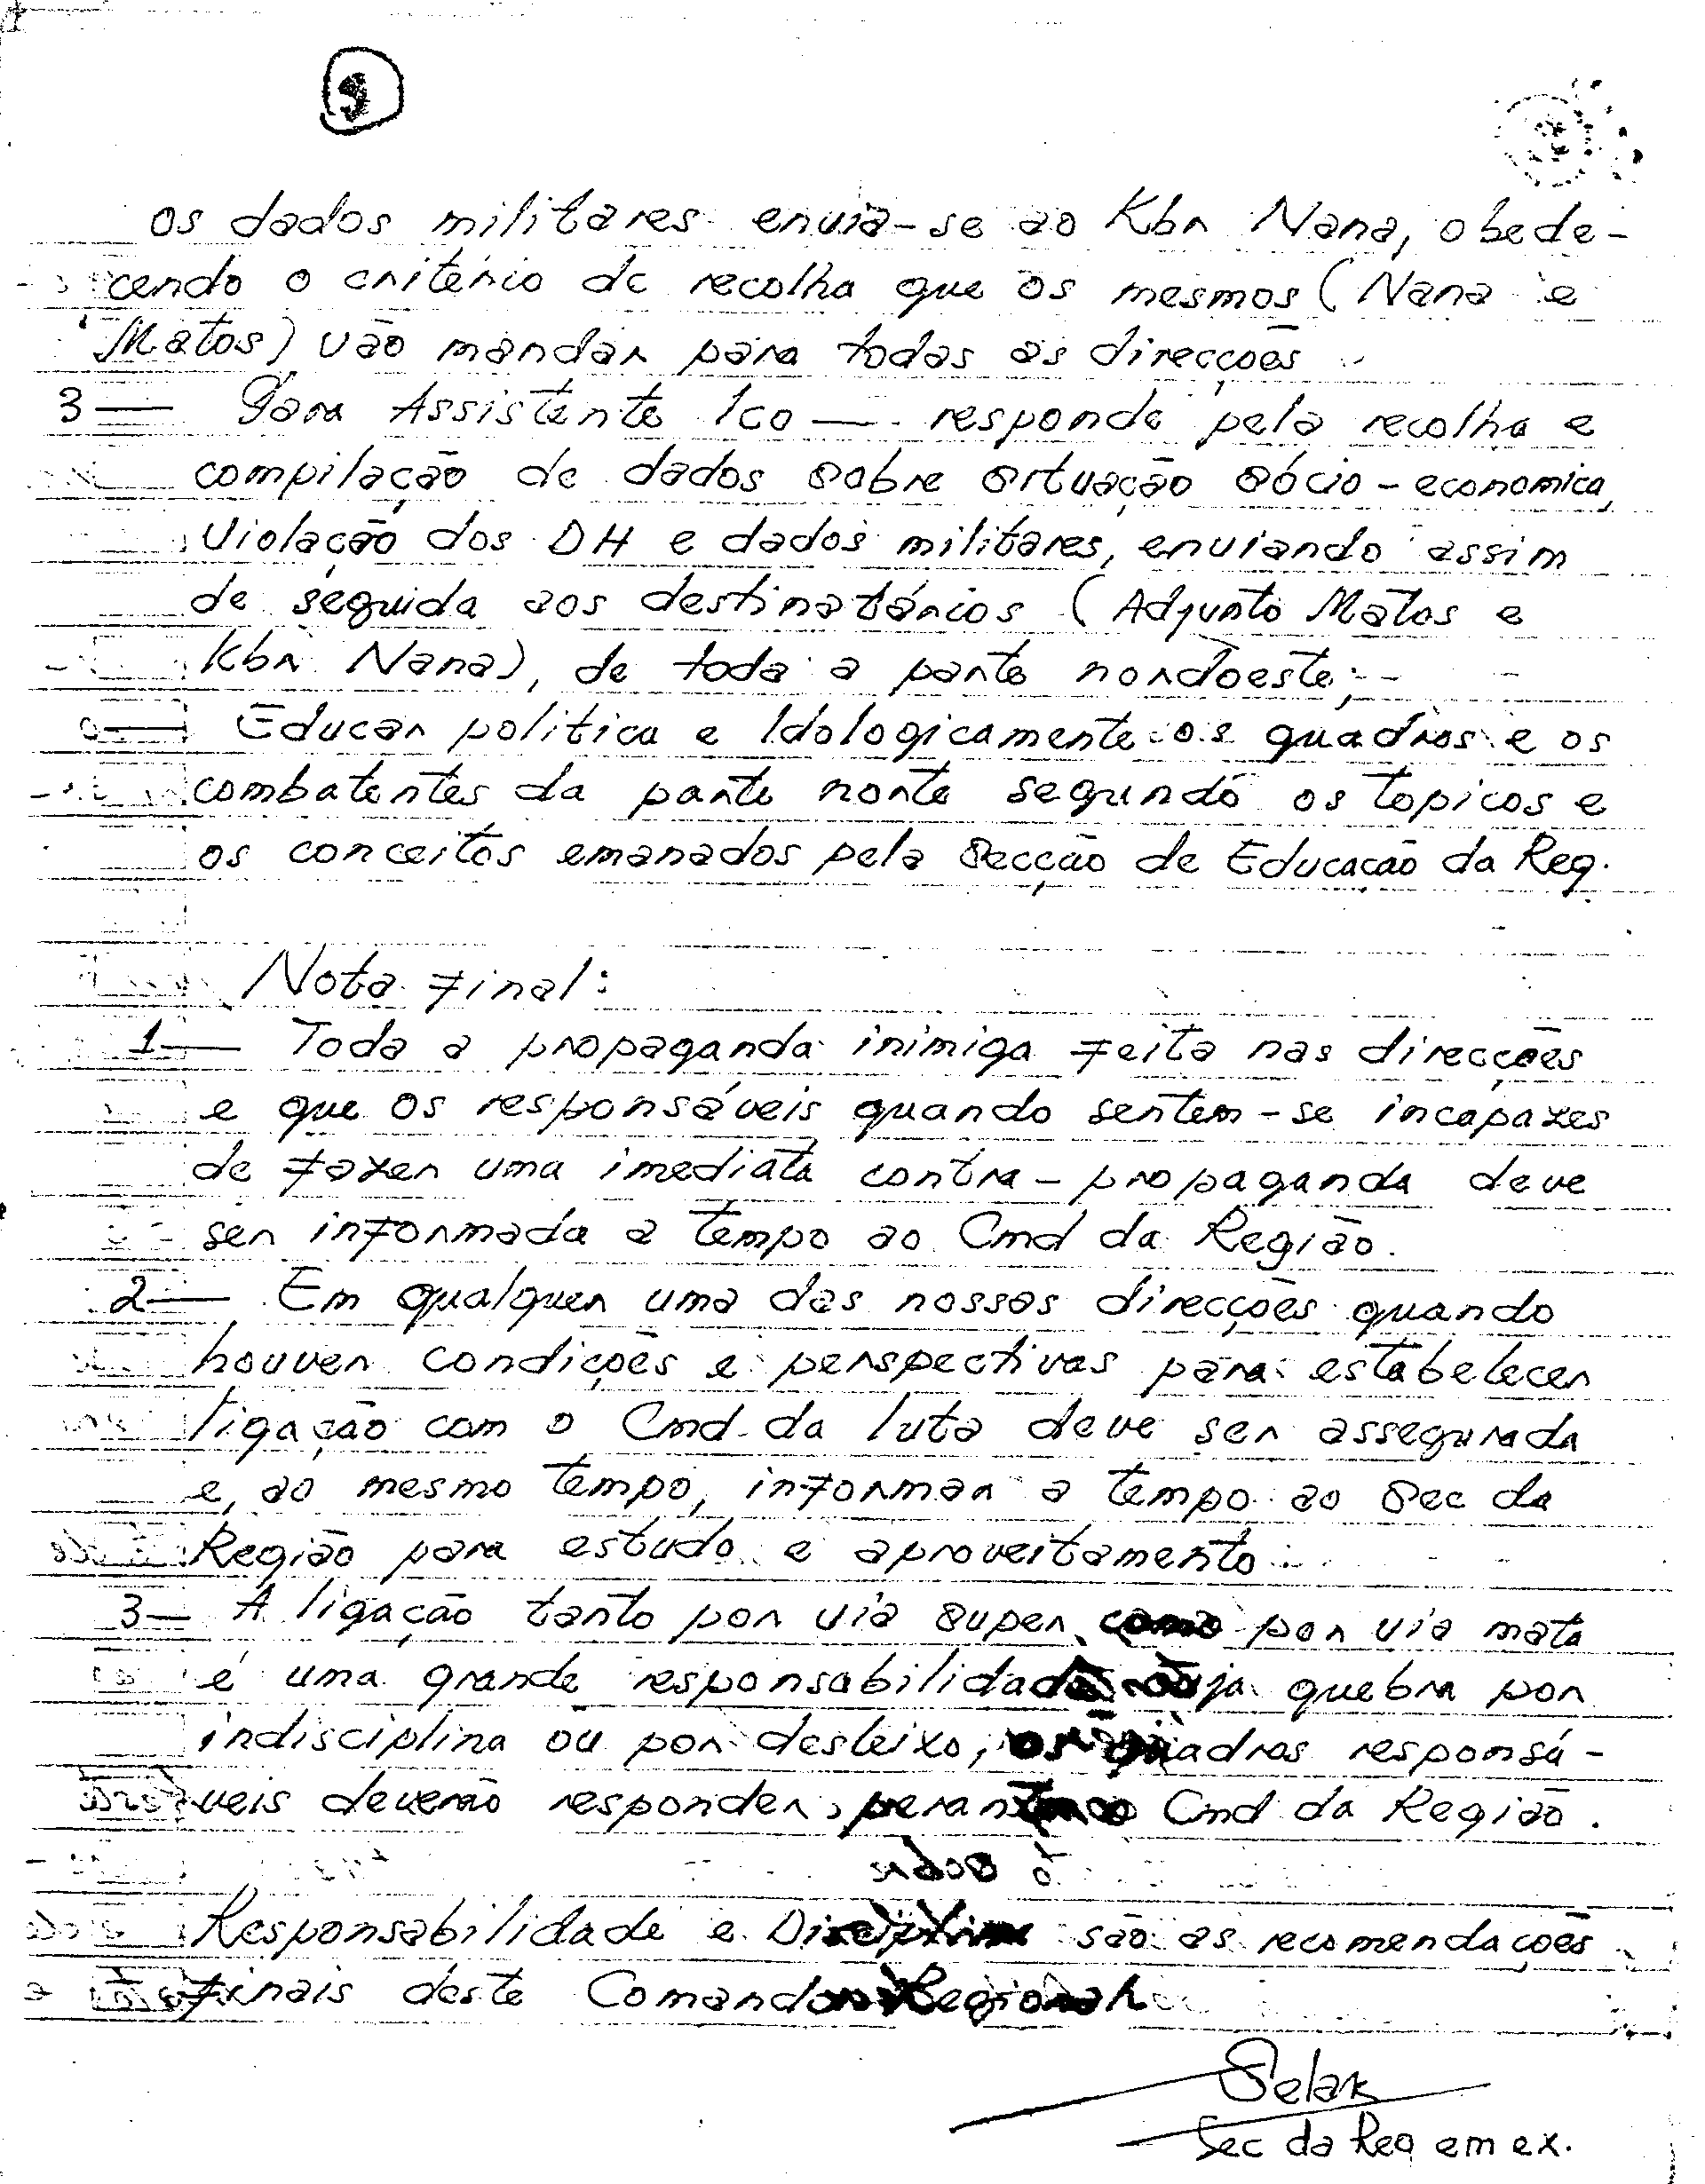 os dados militares envia-se ao Kbn Nana, obede-
cendo o critério de recolha que os mesmos (Nana e
Matos) vão mandar para todas as direcções
3— Para Assistente Ico — responde pela recolha e
compilação de dados sobre situação sócio-economica,
Violação dos DH e dados militares, enviando assim
de seguida aos destinatários (Adjunto Matos e
Kbn Nana), de toda a parte nordoeste;
— Educar politica e Idologicamente os quadros e os
combatentes da parte norte segundo os topicos e
os conceitos emanados pela Secção de Educação da Reg.
Nota Final:
1— Toda a propaganda inimiga feita nas direcções
e que os responsáveis quando sentem-se incapazes
de fazer uma imediata contra-propaganda deve
ser informada a tempo ao Cmd da Região.
2— Em qualquer uma das nossas direcções quando
houver condições e perspectivas para estabelecer
ligação com o Cmd da luta deve ser assegurada
e, ao mesmo tempo, informar a tempo ao Sec da
Região para estudo e aproveitamento
3— A ligação tanto por via super, como por via mata
é uma grande responsabilidade cuja quebra por
indisciplina ou por desleixo, os quadros responsá-
veis deverão responder perante o Cmd da Região.
Responsabilidade e Disciplina são as recomendações
finais deste Comando Regional
Selak
Sec da Reg em ex.